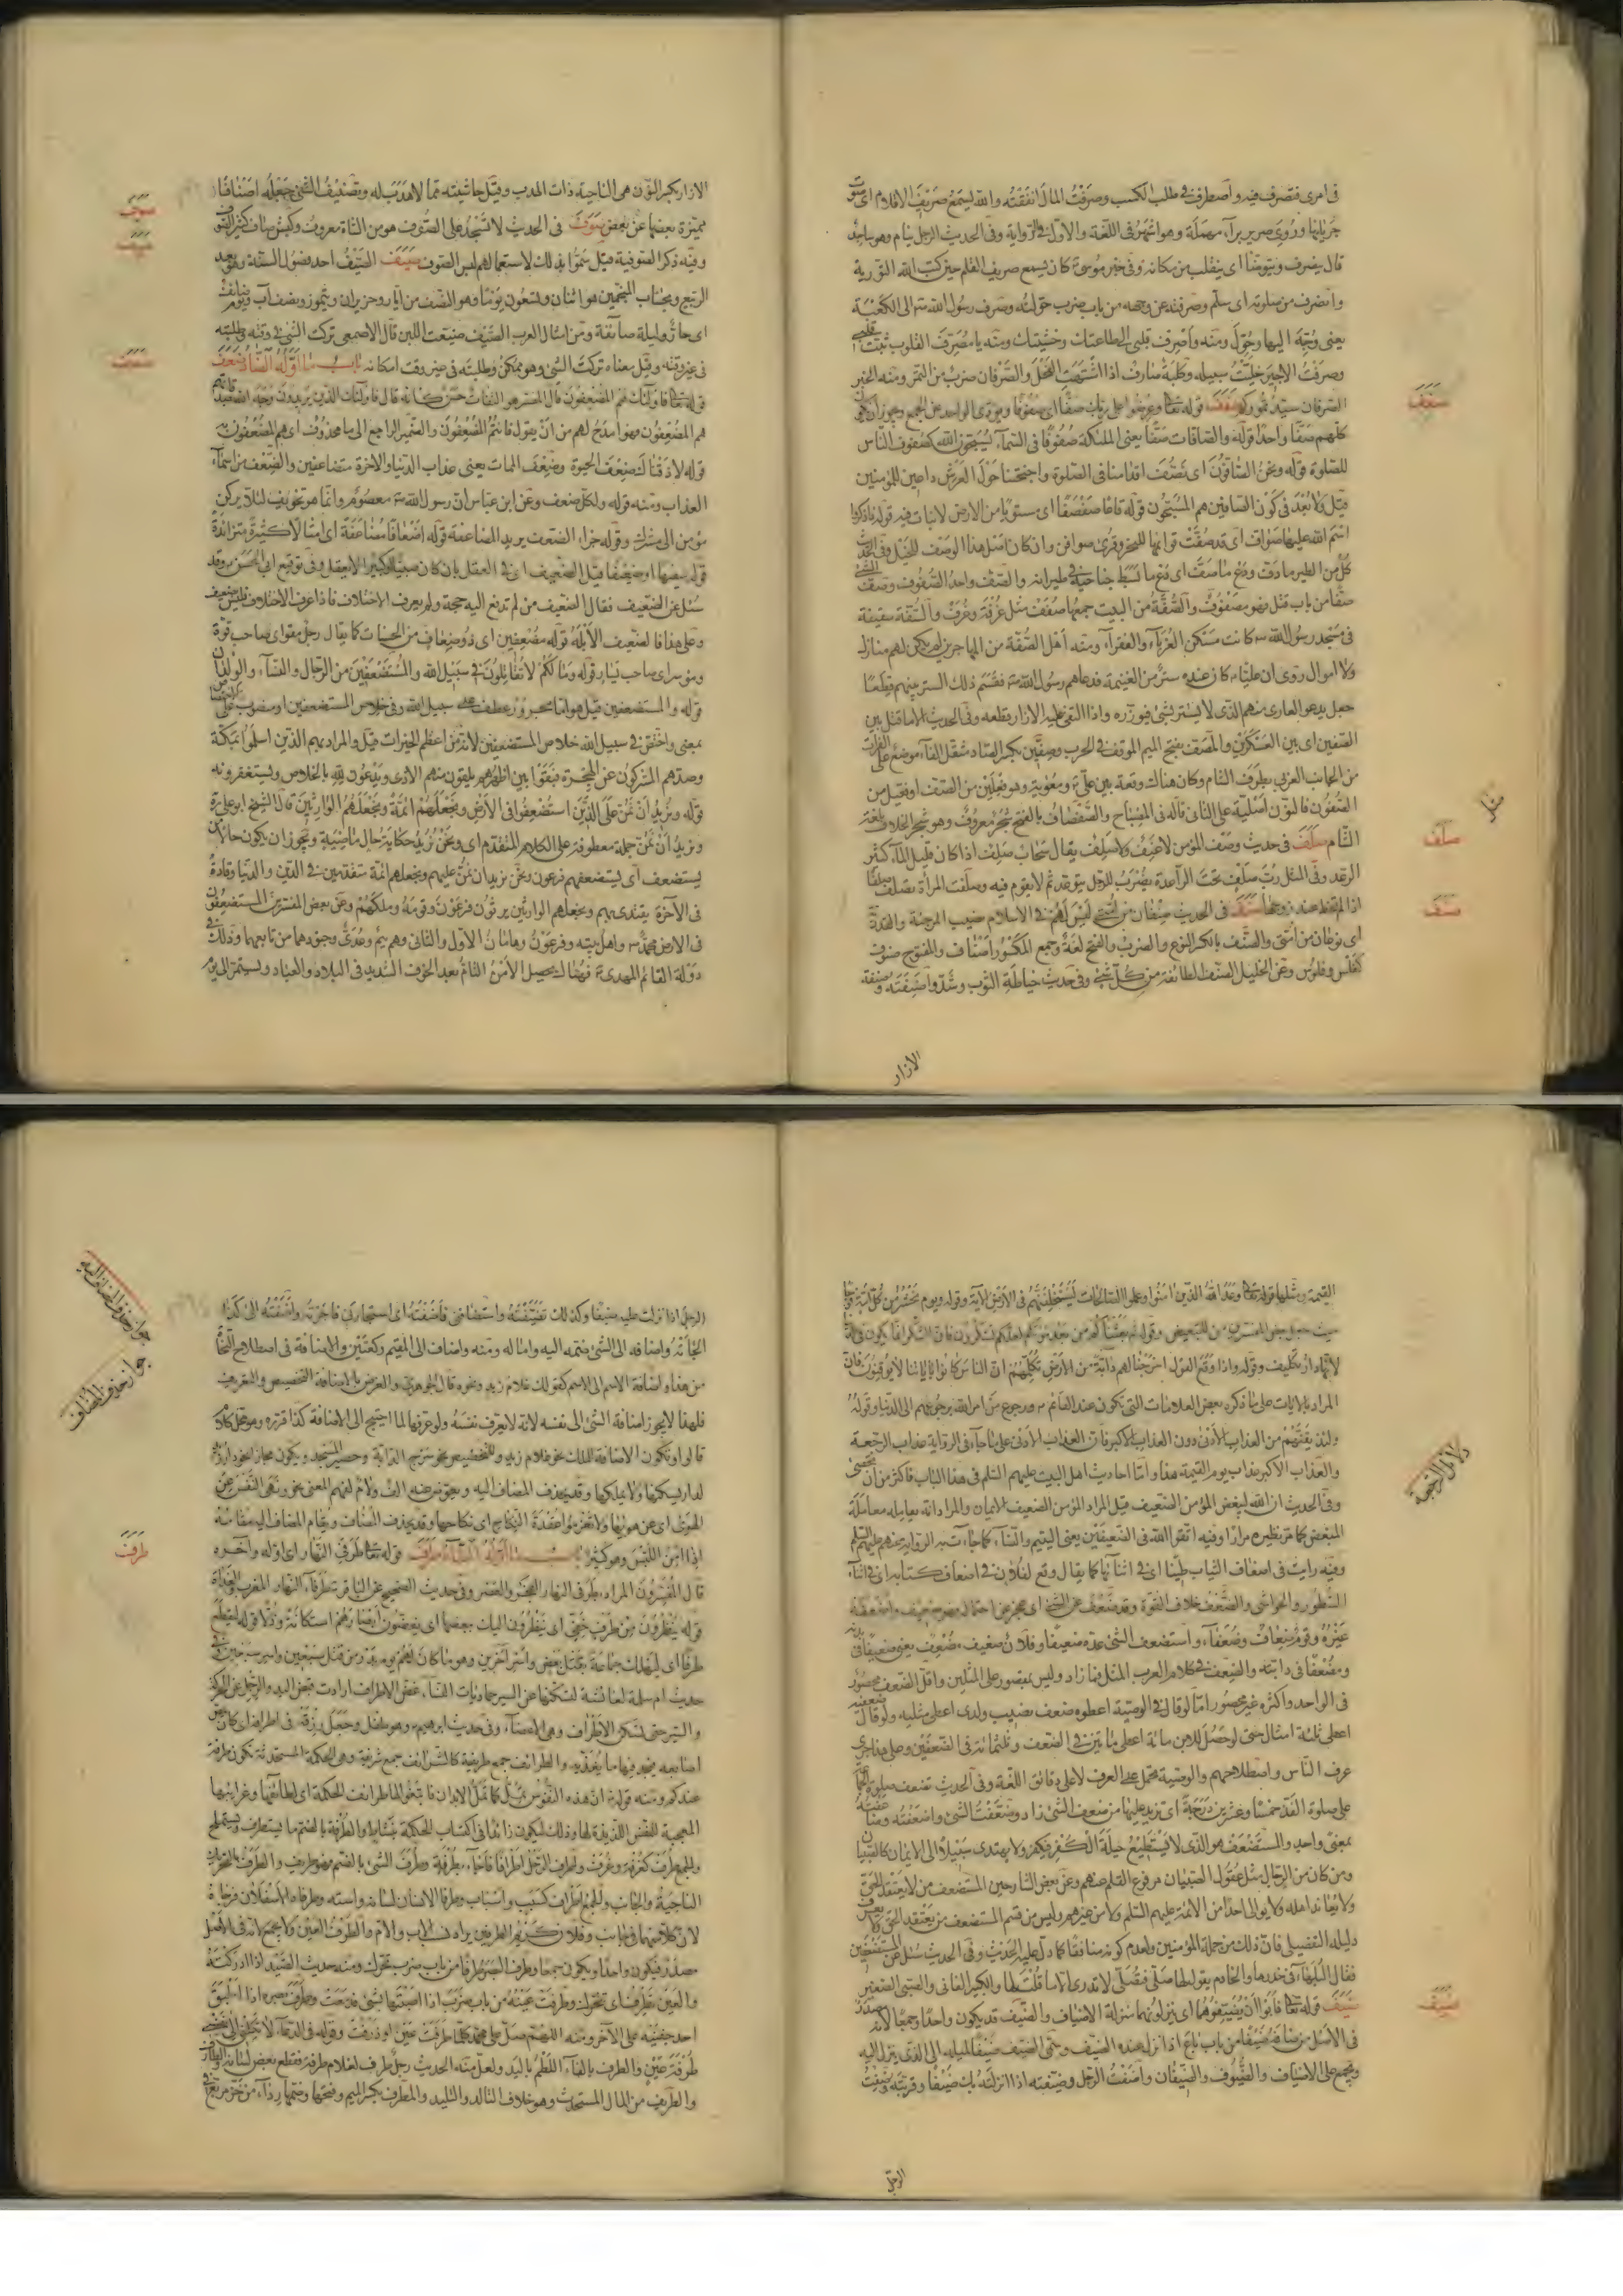 فى امرى فتصرف فيه واصطرف فى طلب الكسب وصرفت المال انفقته والله ليسمع صريف الاقلام اى صوت
جريانها وروى صرير براء مهملة وهو اشهر فى اللغة والاول فى الرواية وفى الحديث الرجل ينام وهو ساجد
قال ينصرف ويتوضأ اى ينقلب من مكانه وفى خبر موسى كان يسمع صريف القلم حين كتب الله التورية
وانصرف من صلوته اى سلم وصرفته عن وجهه من باب ضرب حولته وصرف رسول الله الى الكعبة
يعنى وجه اليها وحول ومنه واصرف قلبى الى طاعتك وخشيتك ومنه يا مصرف القلوب ثبت قلبى
وصرفت الاجير خليت سبيله وكلبة صارف اذا اشتهت الفحل والصرفان ضرب من التمر ومنه الخبر
الصرفان سيد تموركم صفف قوله تعالى وعرضوا على ربك صفا اى صفوفا
كلهم صفا واحدا قوله والصافات صفا يعنى الملئكة صفوفا فى السماء يسبحون الله كصفوف الناس
للصلوة قوله ونحن الصافون اى نصف اقدامنا فى الصلوة واجنحتنا حول العرش داعين للمؤمنين
قيل ولا بعد فى كون الصافين هم المسبحون قوله قاعا صفصفا اى مستويا من الارض لا نبات فيه قوله فاذكروا
اسم الله عليها صواف اى قد صفت قوائمها للنحر وقرئ صوافن وان كان اصل هذا الوصف للخيل وفى الحديث
كل من الطير ما دف ودع ما صف اى دع ما بسط جناحيه فى طيرانه والصف واحد الصفوف وصففت الشئ
صفا من باب قتل فهو مصفوف والصفة من البيت جمعها صفف مثل غرفة وغرف والصفة سقيفة
فى مسجد رسول الله كانت مسكن الغرباء والفقراء ومنه اهل الصفة من المهاجرين لم يكن لهم منازل
ولا اموال روى ان عليا كان عنده ستر من الغنيمة فدعاهم رسول الله فقسم ذلك الستر بينهم قطعا
جعل يدعو العارى منهم الذى لا يستتر بشئ فيوزره واذا التقى عليه الازار قطعه وفى الحديث
الصفين اى بين العسكرين والمصف بفتح الميم الموقف فى الحرب وصفين بكسر الصاد مثقل الفاء موضع على الفرات
من الجانب الغربى بطرف الشام وكان هناك وقعة بين على ومعوية وهو فعلين من الصف او فعيل من
الصفون فالنون اصلية على الثانى قاله فى المصباح والصفصاف بالفتح شجر معروف وهو شجر الخلاف بلغة
الشام صلف فى حديث وصف المؤمن لا عنف ولا صلف يقال سحاب صلف اذا كان قليل الماء كثير
الرعد وفى المثل رب صلف تحت الراعدة يضرب للرجل يتوعد ثم لا يقوم فيه وصلفت المراة تصلف صلفا
اذا لم تحظ عند زوجها صنف فى الحديث صنفان من امتى ليس لهم فى الاسلام نصيب المرجئة والقدرية
اى نوعان من امتى والصنف بالكسر النوع والضرب والفتح لغة وجمع المكسور اصناف والمفتوح صنوف
كفلس وفلوس وعن الخليل الصنف الطائفة من كل شئ وفى حديث خياطة الثوب وشدوا صنفته وصنفة
الازار
صفف
صلف
صنف
الازار بكسر النون هى الناحية ذات الهدب وقيل حاشيته مما لا هدب له وتصنيف الشئ جعله اصنافا
مميزة بعضها عن بعض صوف فى الحديث لا تسجد على الصوف هو من الشاة معروف وكبش صاف كثير الصوف
وفيه ذكر الصوفية قيل سموا بذلك لاستعمالهم لبس الصوف صيف الصيف احد فصول السنة وهو بعد
الربيع وبحساب المنجمين هو اثنان وتسعون يوما وهو النصف من ايار وحزيران وتموز ونصف آب ويوم صايف
اى حار وليلة صائفة ومن امثال العرب الصيف ضيعت اللبن قال الاصمعى تركت الشئ فى وقته وطلبته
فى غير وقته وقيل معناه تركت الشئ وهو ممكن وطلبته فى غير وقت امكانه باب ما اوله الضاد ضعف
هم المضعفون وهو امدح لهم من ان يقول فانتم المضعفون والضمير الراجع الى ما محذوف اى هم المضعفون به
قوله لاذقناك ضعف الحيوة وضعف الممات يعنى عذاب الدنيا والاخرة متضاعفين والضعف من اسماء
العذاب ومنه قوله ولكل ضعف وعن ابن عباس ان رسول الله معصوم وانما هو تخويف لئلا يركن
مؤمن الى مشرك وقوله جزاء الضعف يريد المضاعفة قوله اضعافا مضاعفة اى امثالا كثيرة متزايدة
قوله سفيها او ضعيفا قيل الضعيف اى فى العقل بان كان صبيا او كبيرا لا يعقل
سئل عن الضعيف فقال الضعيف من لم ترفع اليه حجة ولم يعرف الاختلاف فاذا عرف الاختلاف فليس بضعيف
وعلى هذا فالضعيف الابله قوله مضعفين اى ذو اضعاف من الحسنات كما يقال رجل مقو اى صاحب قوة
وموسر اى صاحب يسار قوله وما لكم لا تقاتلون فى سبيل الله والمستضعفين من الرجال والنساء والولدان
قوله والمستضعفين قيل هو اما مجرور عطف على سبيل الله وفى خلاص المستضعفين او منصوب على الاختصاص
بمعنى واختص فى سبيل الله خلاص المستضعفين لانه من اعظم الخيرات قيل والمراد بهم الذين اسلموا بمكة
وصدهم المشركون عن الهجرة فبقوا بين اظهرهم يلقون منهم الاذى ويدعون الله بالخلاص ويستغفرونه
قوله ونريد ان نمن على الذين استضعفوا فى الارض ونجعلهم ائمة ونجعلهم الوارثين قال الشيخ ابو على ره
ونريد ان نمن جملة معطوفة على الكلام المتقدم اى ونحن نريد حكاية حال ماضية ويجوز ان يكون حالا من
يستضعف اى يستضعفهم فرعون ونحن نريد ان نمن عليهم ونجعلهم ائمة متقدمين فى الدين والدنيا وقادة
فى الآخرة يقتدى بهم ونجعلهم الوارثين يرثون فرعون وقومه وملكهم وعن بعض المفسرين المستضعفون
فى الارض محمد واهل بيته وفرعون وهامان الاول والثانى وهم تيم وعدى وجنودهما من تابعهما وذلك فى
دولة القائم المهدى فهناك يحصل الامن التام بعد الخوف الشديد فى البلاد والعباد ويستمر الى يوم
صوف
صيف
ضعف
القيمة ومثلها قوله تعالى وعد الله الذين آمنوا وعملوا الصالحات ليستخلفنهم فى الارض الآية وقوله ويوم نحشر من كل امة فوجا
المراد بالايات على ما ذكره بعض العلامات التى تكون عند القائم
ولنذيقنهم من العذاب الادنى دون العذاب الاكبر فان العذاب الادنى على ما جاء فى الرواية عذاب الرجعة
والعذاب الاكبر عذاب يوم القيمة هذا واما احاديث اهل البيت عليهم السلم فى هذا الباب فاكثر من ان تحصى
وفى الحديث ان الله ليبغض المؤمن الضعيف قيل المراد المؤمن الضعيف الايمان والمراد انه يعامله معاملة
المبغض كما مر نظيره مرارا وفيه اتقوا الله فى الضعيفين يعنى اليتيم والنساء كما جاءت به الرواية عنهم عليهم السلم
وفيه رايت فى اضعاف الثياب طينا اى فى اثنائها كما يقال وقع لفلان فى اضعاف كتابه اى فى اثناء
السطور والحواشى والضعف خلاف القوة وقد ضعف عن الشئ اى عجز عن احتماله فهو ضعيف واضعفه
غيره وقوم ضعاف وضعفاء واستضعف الشئ عده ضعيفا
ومضعفا فى دابته والضعف فى كلام العرب المثل فما زاد وليس بمقصور على المثلين واقل الضعف محصور
فى الواحد واكثره غير محصور اما لو قال فى الوصية اعطوه ضعف نصيب ولدى اعطى مثليه ولو قال ضعفيه
اعطى ثلثة امثال حتى لو حصل للابن مائة اعطى مأتين فى الضعف وثلثمائة فى الضعفين وعلى هذا جرى
عرف الناس واصطلاحهم والوصية تحمل على العرف لا على دقائق اللغة وفى الحديث تضعف صلوة الجماعة
على صلوة الفذ خمسا وعشرين درجة اى تزيد عليها من ضعف الشئ زاد وضعفت الشئ واضعفته وضاعفته
بمعنى واحد والمستضعف هو الذى لا يستطيع حيلة الكفر فيكفر ولا يهتدى سبيلا الى الايمان كالصبيان
ومن كان من الرجال مثل عقول الصبيان مرفوع القلم عنهم وعن بعض الشارحين المستضعف من لا يعتقد الحق
ولا يعاند اهله ولا يوالى احدا من الائمة عليهم السلم ولا من غيرهم وليس من قسم المستضعف من يعتقد الحق ولا يعرف
دليله التفصيلى فان ذلك من جملة المؤمنين ولعدم كونه منافقا كما دل عليه الحديث وفى الحديث سئل عن المستضعفين
فقال البلهاء فى خدرها والخادم يقول لها صلى فتصلى لا تدرى الا ما قلت لها والكبير الفانى والصبى الصغير
ضيف قوله تعالى فابوا ان يضيفوهما اى ينزلوهما منزلة الاضياف والضيف قد يكون واحدا وجمعا لانه مصدر
فى الاصل من ضافه ضيفا من باب باع اذا نزل عنده الضيف وسمى الضيف ضيفا لميله الى الذى ينزل اليه
ويجمع على الاضياف والضيوف والضيفان واضفت الرجل وضيفته اذا انزلته بك ضيفا وقريته وضفت
الرجل
دلائل الرجعة
ضيف
الرجل اذا نزلت عليه ضيفا وكذلك تضيفته واستضافنى فاضفته اى استجارنى فاجرته واضفته الى كذا
الجاته واضافه الى الشئ ضمه اليه واماله ومنه واضاف الى المقيم ركعتين والاضافة فى اصطلاح النحاة
من هذا واضافة الاسم الى الاسم كقولك غلام زيد ونحوه قال الجوهرى والغرض بالاضافة التخصيص والتعريف
فلهذا لا يجوز اضافة الشئ الى نفسه لانه لا يعرف نفسه ولو عرفها لما احتيج الى الاضافة كذا قرره
قالوا وتكون الاضافة للملك نحو غلام زيد وللتخصيص نحو سرج الدابة وحصير المسجد ويكون مجازا نحو دار زيد
لدار يسكنها ولا يملكها وقد يحذف المضاف اليه ويعوض عنه الف ولام لفهم المعنى نحو ونهى النفس عن
الهوى اى عن هوىها ولا تعزموا عقدة النكاح اى نكاحها وقد يحذف المضاف ويقام المضاف اليه مقامه
اذا امن اللبس وهو كثير باب ما اوله الطاء طرف قوله تعالى طرفى النهار اى اوله وآخره
قال المفسرون المراد بطرفى النهار الفجر والعصر وفى حديث الصحيح عن الباقر طرفاء النهار المغرب والغداة
قوله ينظرون من طرف خفى اى ينظرون اليك ببعضها اى يغضون ابصارهم استكانة وذلا قوله ليقطع
طرفا اى ليهلك جماعة بقتل بعض واسر آخرين وهو ما كان لهم يوم بدر من قتل سبعين واسر سبعين
حديث ام سلمة لعائشة لتسكتها عن السير حماديات النساء غض الاطراف ارادت قبض اليد والرجل عن الحركة
والسير حتى تسكن الاطراف وهى الاعضاء وفى حديث ابرهيم وهو طفل وجعل رزقه فى اطرافه اى كان يمص
اصابعه فيجد فيها ما يغذيه والطرائف جمع طريفة كالشرائف جمع شريفة وهى الحكمة المستحدثة تكون طرفة
عندكم ومنه قوله ان هذه النفوس تمل كما تمل الابدان فابتغوا لها طرائف الحكمة اى لطائفها وغرائبها
المعجبة للنفس اللذيذة لها وذلك ليكون زائدا فى اكتساب الحكمة بنشاط والطرفة بالضم ما يستطرف ويستملح
والجمع طرف كغرفة وغرف واطرف الرجل اطرافا جاء بطرفة وطرف الشئ بالضم فهو طريف والطرف بالتحريك
الناحية والجانب والجمع اطراف كسبب واسباب وطرفا الانسان لسانه واسته
لان كلا منهما فى جانب وفلان كريم الطرفين يراد نسب الاب والام والطرف العين ولا يجمع لانه فى الاصل
مصدر فيكون واحدا ويكون جمعا وطرف البصر طرفا من باب ضرب تحرك ومنه حديث الصيد اذا ادركته
والعين تطرف اى تتحرك وطرفت عينه من باب ضرب اذا اصبتها بشئ فدمعت وطرف بصره اذا اطبق
احد جفنيه على الآخر ومنه اللهم صل على محمد كلما طرفت عين او ذرفت وقوله فى الدعاء لا تكلنى الى نفسى
طرفة عين والطرف بالفاء اللطم باليد ولعل منه الحديث رجل طرف لغلام طرفة فقطع بعض لسانه
والطريف من المال المستحدث وهو خلاف التالد والتليد والمطرف بكسر الميم وفتحها وضمها رداء من خز مربع
جواز حذف المضاف اليه
جواز حذف المضاف
طرف